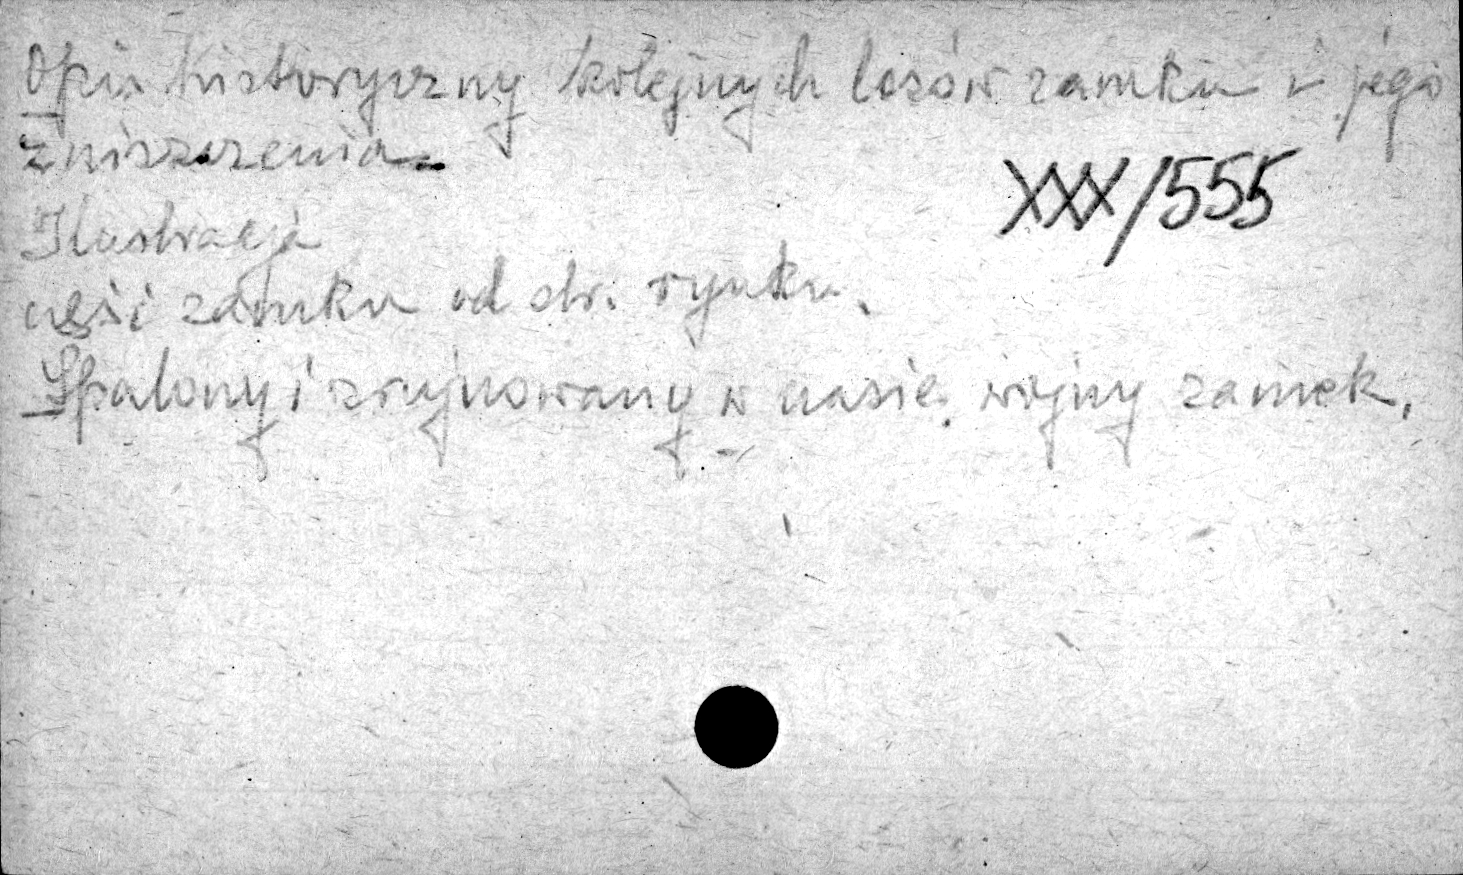 Opis historyczny kolejnych losów zamku i jego
zniszczenia.
XXX/555
Ilustracja
część zamku od str. rynku.
Spalony i zrujnowany w czasie wojny zamek.